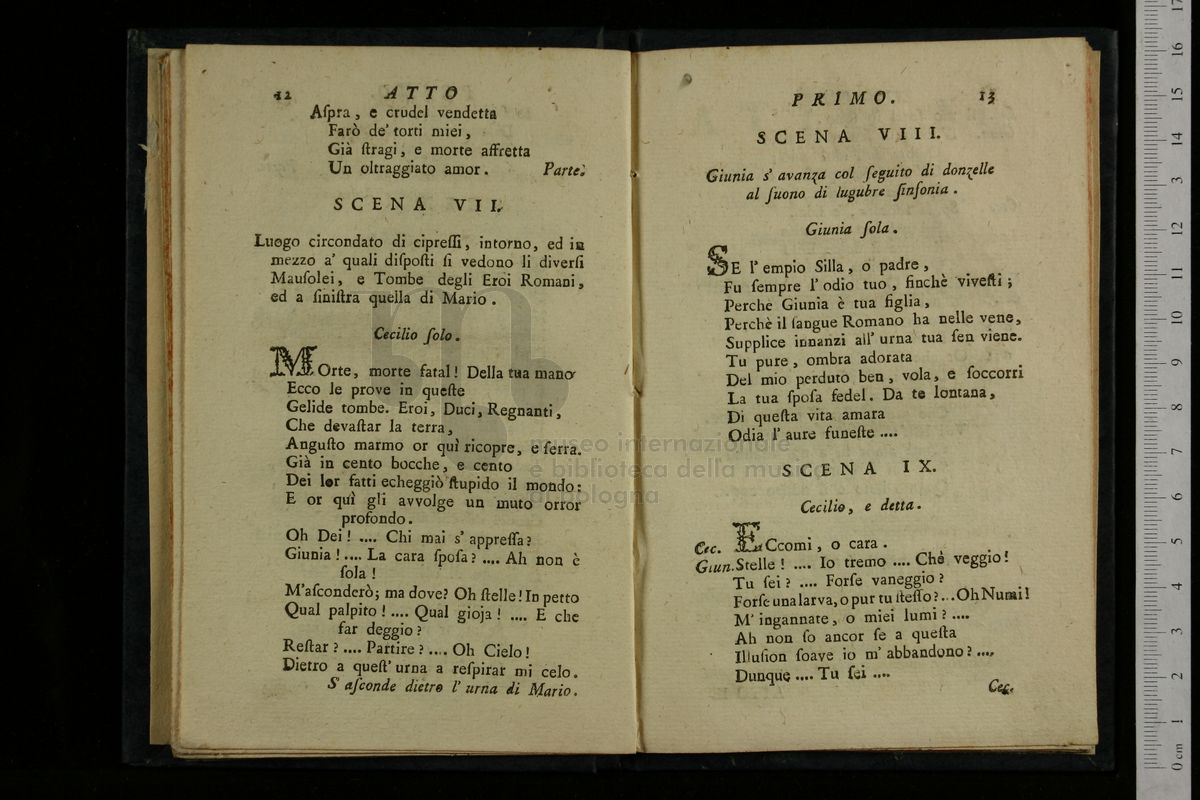 12 ATTO
Aſpra, e crudel vendetta
Farò de' torti miei,
Già ſtragi, e morte affretta
Un oltraggiato amor. Parte.
SCENA VII.
Luogo circondato di cipreſſi, intorno, ed in
mezzo a' quali diſpoſti ſi vedono li diverſi
Mauſolei, e Tombe degli Eroi Romani,
ed a ſiniſtra quella di Mario.
Cecilio ſolo.
MOrte, morte fatal! Della tua mano
Ecco le prove in queſte
Gelide tombe. Eroi, Duci, Regnanti,
Che devaſtar la terra,
Anguſto marmo or quì ricopre, e ſerra.
Già in cento bocche, e cento
Dei lor fatti echeggiò ſtupido il mondo:
E or quì gli avvolge un muto orror
profondo.
Oh Dei! .... Chi mai s' appreſſa?
Giunia! .... La cara ſpoſa? .... Ah non è
ſola!
M'aſconderò; ma dove? Oh ſtelle! In petto
Qual palpito! .... Qual gioja! .... E che
far deggio?
Reſtar? .... Partire? .... Oh Cielo!
Dietro a queſt' urna a reſpirar mi celo.
S' aſconde dietro l' urna di Mario.
PRIMO. 13
SCENA VIII.
Giunia s' avanza col ſeguito di donzelle
al ſuono di lugubre ſinfonia.
Giunia ſola.
SE l' empio Silla, o padre,
Fu ſempre l' odio tuo, finchè viveſti;
Perche Giunia è tua figlia,
Perchè il ſangue Romano ha nelle vene,
Supplice innanzi all' urna tua ſen viene.
Tu pure, ombra adorata
Del mio perduto ben, vola, e ſoccorri
La tua ſpoſa fedel. Da te lontana,
Di queſta vita amara
Odia l' aure funeſte ....
SCENA IX.
Cecilio, e detta.
Cec. ECcomi, o cara.
Giun. Stelle! .... Io tremo .... Chè veggio!
Tu ſei? .... Forſe vaneggio?
Forſe una larva, o pur tu ſteſſo? ... Oh Numi!
M' ingannate, o miei lumi? ....
Ah non ſo ancor ſe a queſta
Illuſion ſoave io m' abbandono? ....
Dunque .... Tu ſei ....
Cec.
museo internazionale
e biblioteca della musica
di bologna
0 cm 1 2 3 4 5 6 7 8 9 10 11 12 13 14 15 16 17